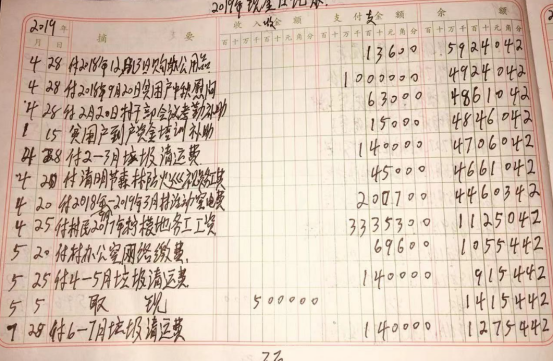 2019年现金日记账
2019年 摘要 收入金额 支付金额 余额
月 日 百十万千百十元角分 百十万千百十元角分 百十万千百十元角分
4 28 付2018年12月13日购办公用品 13600 5924042
4 28 付2018年9月20日贫困户中秋慰问 1000000 4924042
4 28 付2月20日村干部会议考勤补助 63000 4861042
1 15 贫困户到户资金培训补助 15000 4846042
4 28 付2-3月垃圾清运费 140000 4706042
4 20 付清明节森林防火巡视务工费 45000 4661042
4 20 付2018年-2019年3月村活动室电费 200700 4460342
4 25 付村民2017年务工工资 3335300 1125042
5 20 付村办公室网络缴费 69600 1055442
5 25 付4-5月垃圾清运费 140000 915442
5 5 取现 500000 1415442
7 28 付6-7月垃圾清运费 140000 1275442